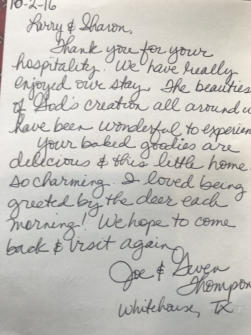 10-2-16
Larry & Sharon,
Thank you for your
hospitality. We have really
enjoyed our stay. The beauties
of God's creation all around u
have been wonderful to experien
Your baked goodies are
delicious & this little home
so charming. I loved being
greeted by the deer each
morning! We hope to come
back & visit again
Joe & Gwen
Thompson
Whitehouse, TX